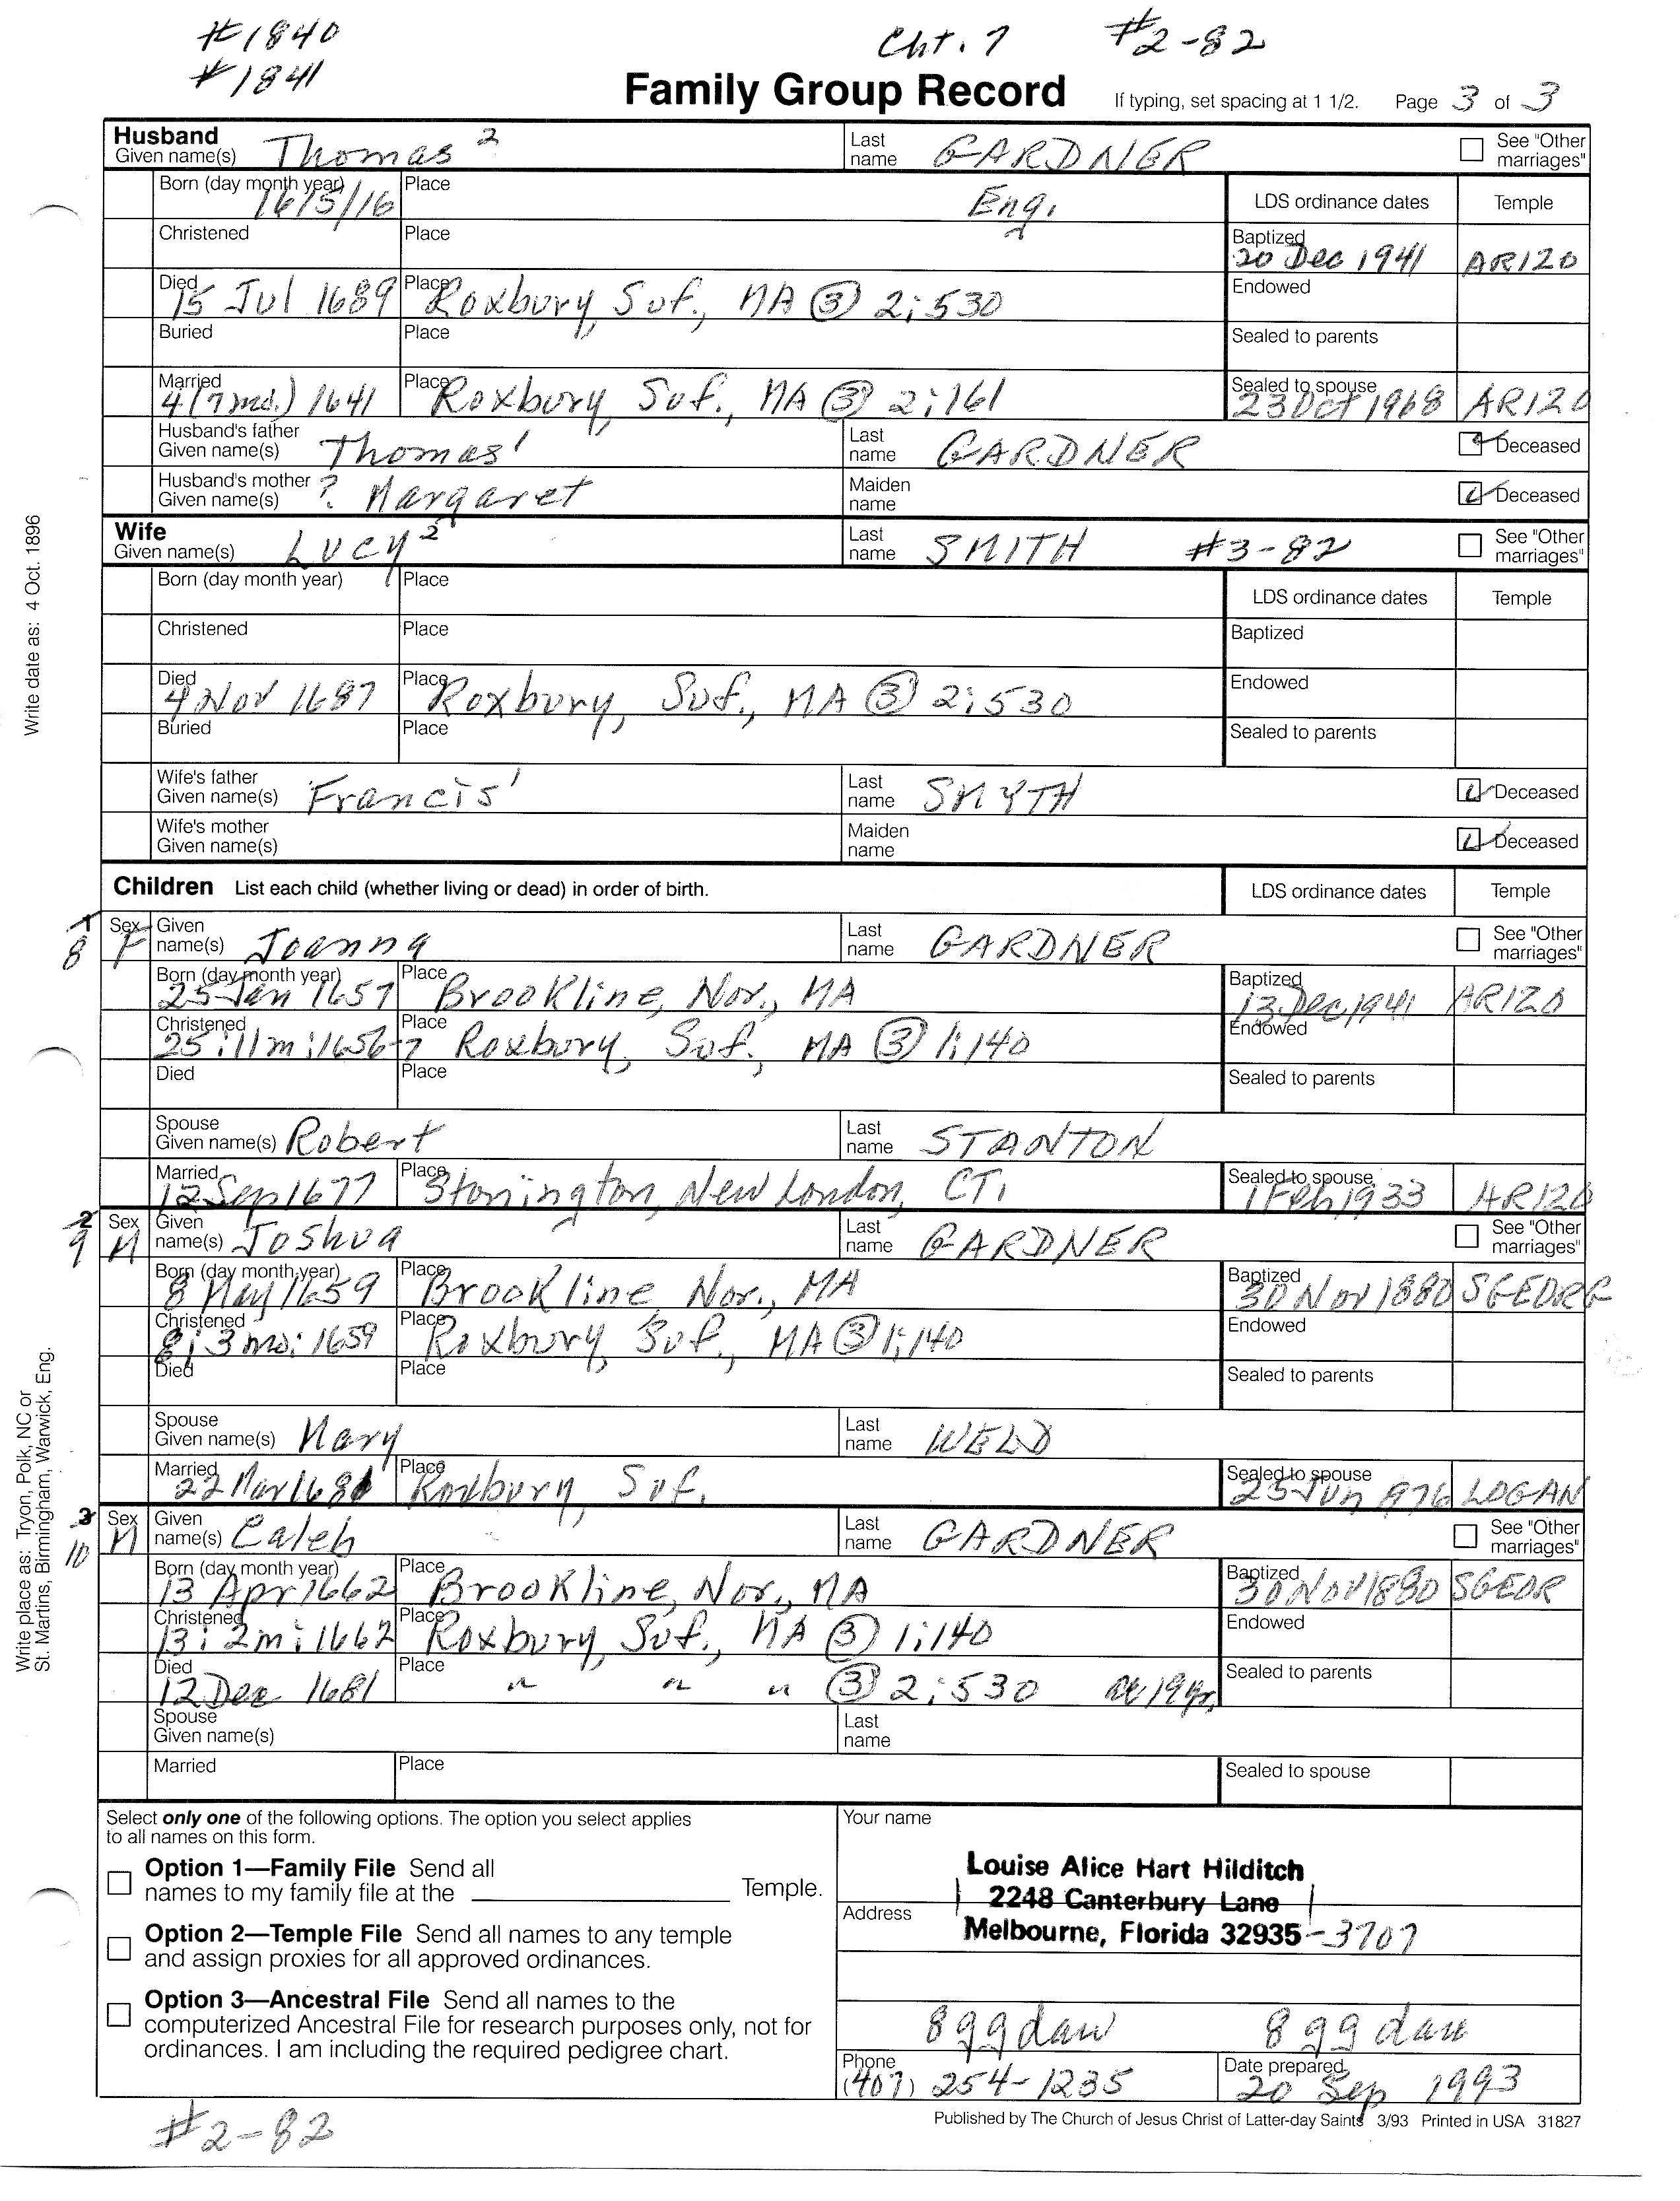 #1840
#1841
Cht. 7 #2-82
Family Group Record If typing, set spacing at 1 1/2. Page 3 of 3
Husband
Given name(s) Thomas 2 Last name GARDNER See "Other marriages"
Born (day month year) 16/5/16 Place Eng. LDS ordinance dates Temple
Christened Place Baptized 20 Dec 1941 AR120
Died 15 Jul 1689 Place Roxbury, Suf., MA ③ 2:530 Endowed
Buried Place Sealed to parents
Married 4 (7 mo.) 1641 Place Roxbury, Suf., MA ③ 2:161 Sealed to spouse 23 Oct 1968 AR120
Husband's father Given name(s) Thomas 1 Last name GARDNER Deceased
Husband's mother Given name(s) ? Margaret Maiden name Deceased
Wife
Given name(s) Lucy 2 Last name SMITH #3-82 See "Other marriages"
Born (day month year) Place LDS ordinance dates Temple
Christened Place Baptized
Died 4 Nov 1687 Place Roxbury, Suf., MA ③ 2:530 Endowed
Buried Place Sealed to parents
Wife's father Given name(s) Francis 1 Last name SMYTH Deceased
Wife's mother Given name(s) Maiden name Deceased
Children List each child (whether living or dead) in order of birth. LDS ordinance dates Temple
1 8 Sex F Given name(s) Joanna Last name GARDNER See "Other marriages"
Born (day month year) 25 Jan 1657 Place Brookline, Nor., MA Baptized 13 Dec 1941 AR120
Christened 25:11m:1656-7 Place Roxbury, Suf., MA ③ 1:140 Endowed
Died Place Sealed to parents
Spouse Given name(s) Robert Last name STANTON
Married 12 Sep 1677 Place Stonington, New London, CT. Sealed to spouse 1 Feb 1933 AR120
2 9 Sex M Given name(s) Joshua Last name GARDNER See "Other marriages"
Born (day month year) 8 May 1659 Place Brookline, Nor., MA Baptized 30 Nov 1880 SGEORG
Christened 8:3 mo: 1659 Place Roxbury, Suf., MA ③ 1:140 Endowed
Died Place Sealed to parents
Spouse Given name(s) Mary Last name WELD
Married 22 Mar 1681 Place Roxbury, Suf. Sealed to spouse 25 Jun 1976 LOGAN
3 10 Sex M Given name(s) Caleb Last name GARDNER See "Other marriages"
Born (day month year) 13 Apr 1662 Place Brookline, Nor., MA Baptized 30 Nov 1880 SGEOR
Christened 13:2m:1662 Place Roxbury, Suf., MA ③ 1:140 Endowed
Died 12 Dec 1681 Place " " " ③ 2:530 ae 19 yr. Sealed to parents
Spouse Given name(s) Last name
Married Place Sealed to spouse
Select only one of the following options. The option you select applies
to all names on this form.
Option 1—Family File Send all
names to my family file at the Temple.
Option 2—Temple File Send all names to any temple
and assign proxies for all approved ordinances.
Option 3—Ancestral File Send all names to the
computerized Ancestral File for research purposes only, not for
ordinances. I am including the required pedigree chart.
Your name
Louise Alice Hart Hilditch
2248 Canterbury Lane
Address
Melbourne, Florida 32935-3707
8 gg dau 8 gg dau
Phone (407) 254-1235 Date prepared 20 Sep 1993
Published by The Church of Jesus Christ of Latter-day Saints 3/93 Printed in USA 31827
#2-82
Write date as: 4 Oct. 1896
Write place as: Tryon, Polk, NC or
St. Martins, Birmingham, Warwick, Eng.